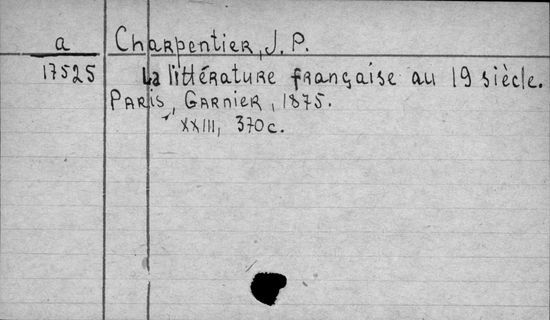 a
Charpentier, J. P.
17525
La littérature française au 19 siècle.
Paris, Garnier, 1875.
XXIII, 370c.